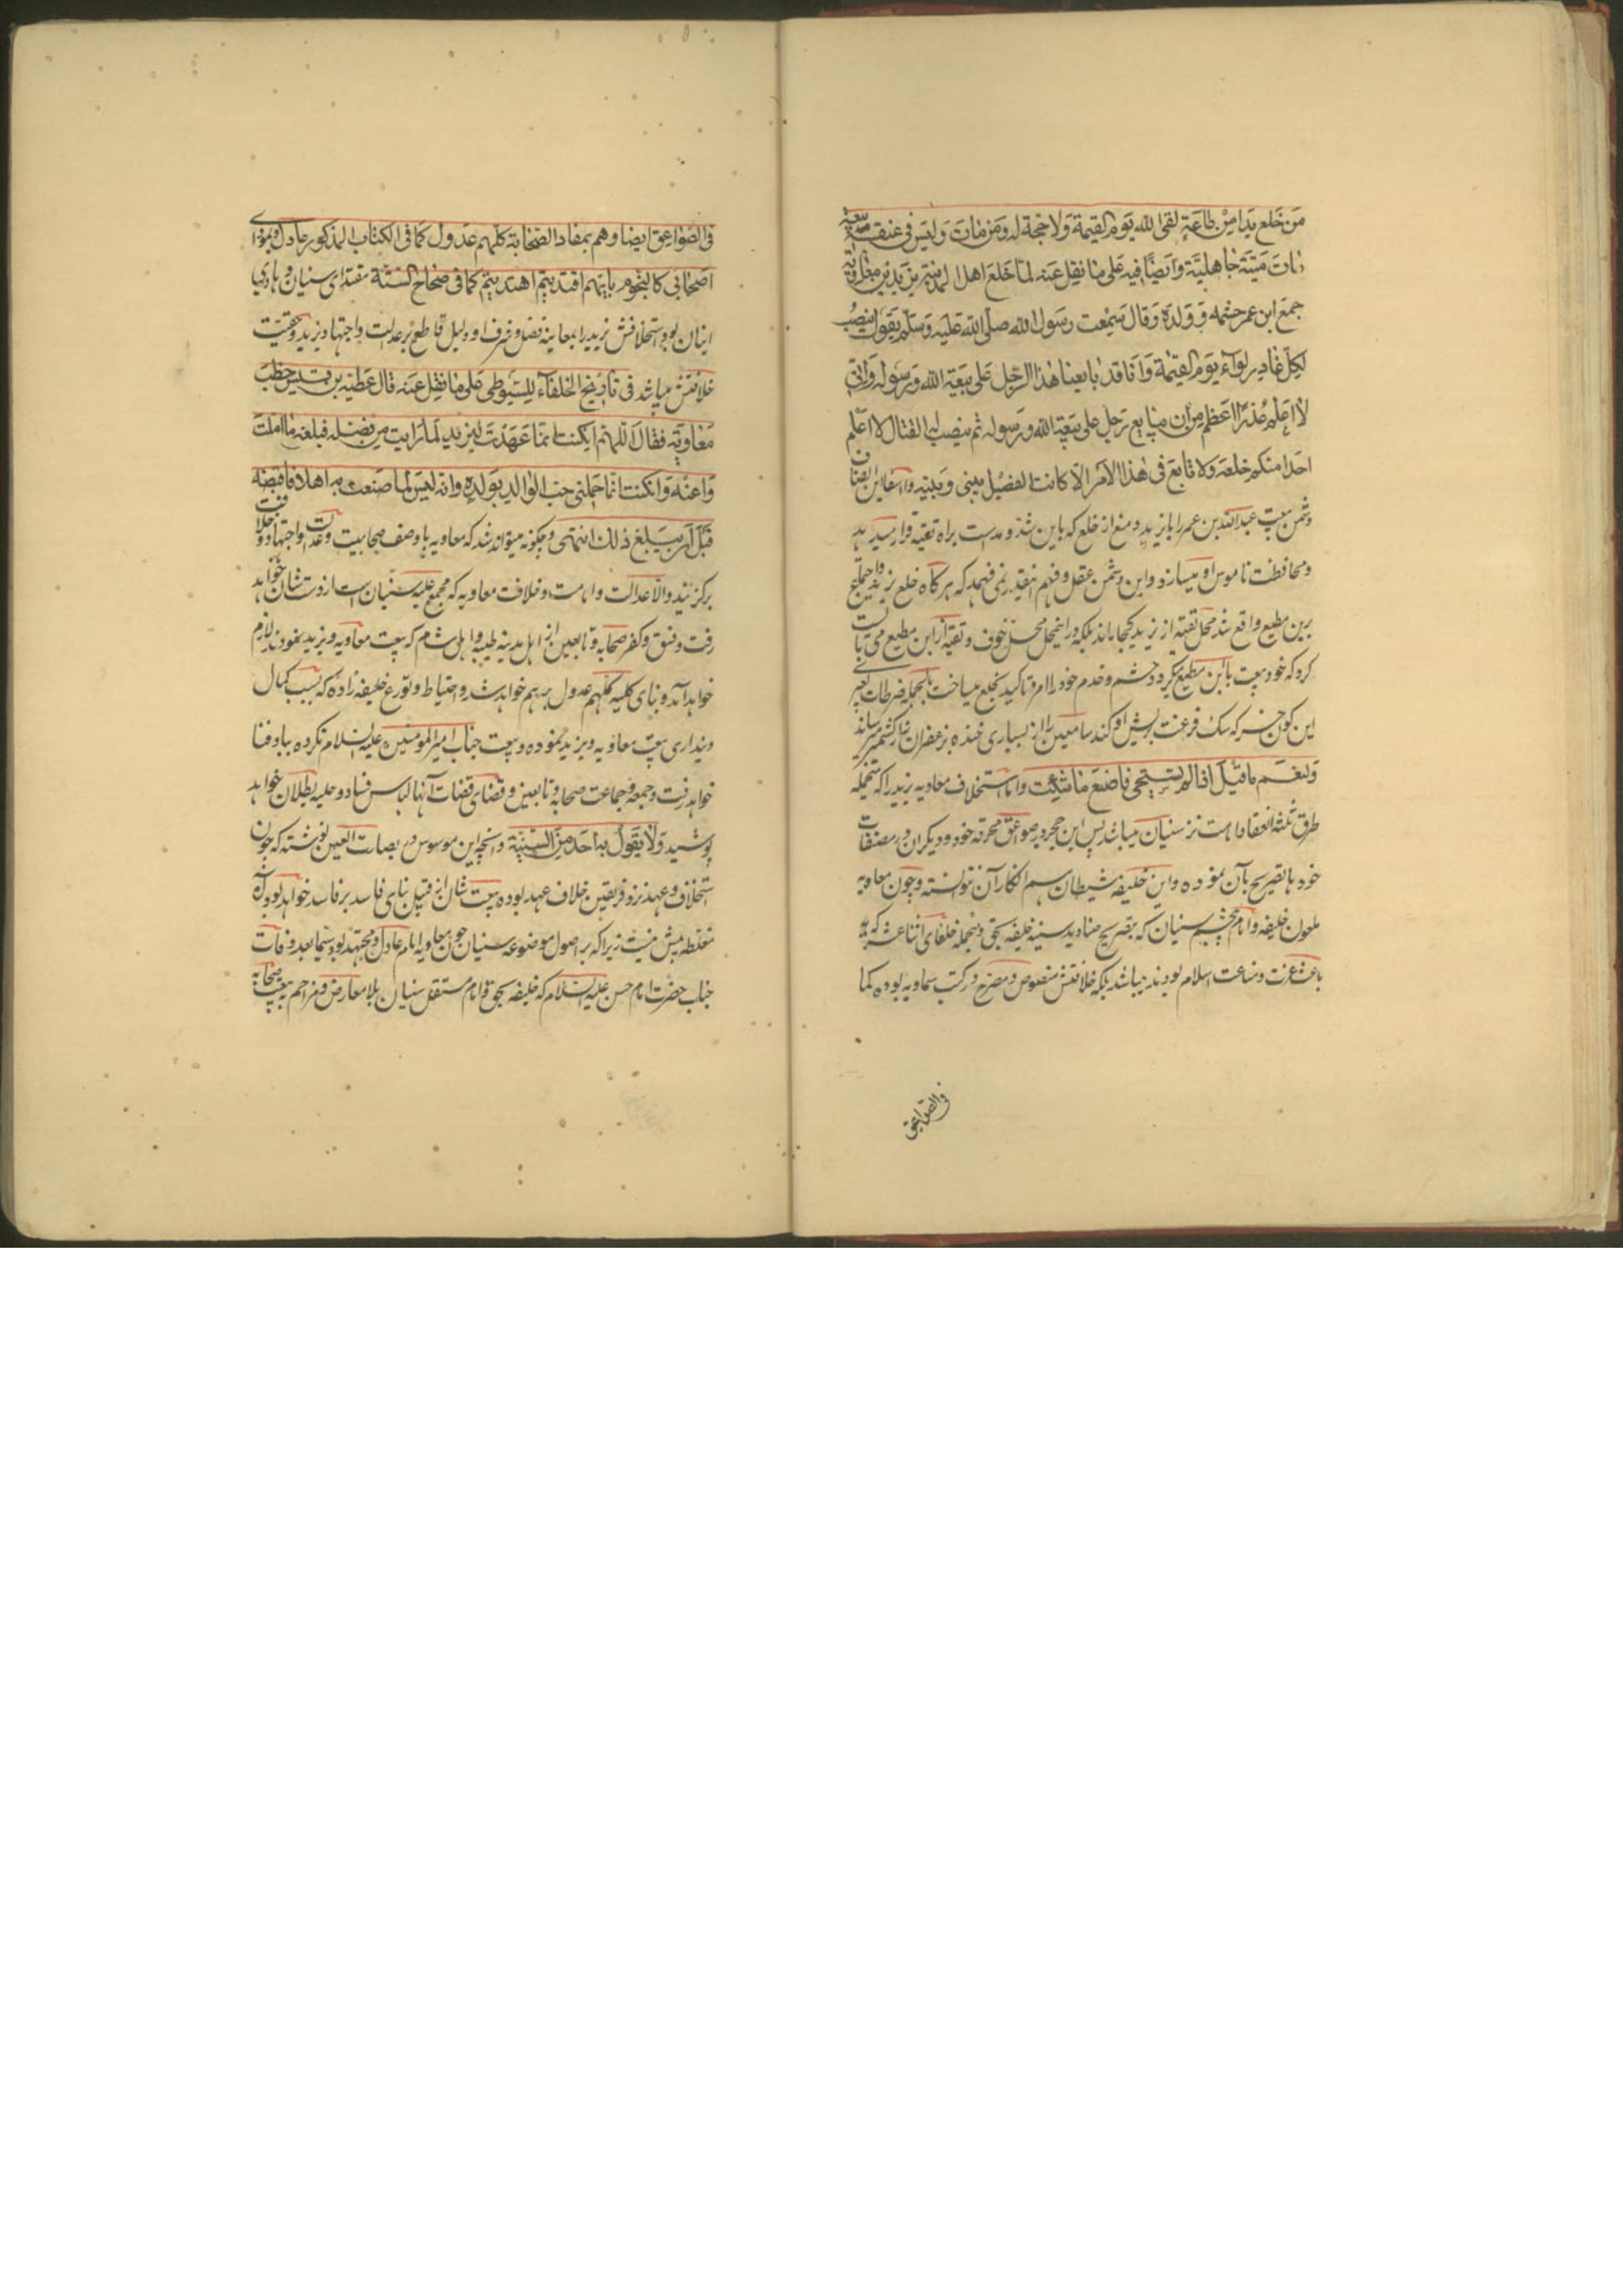 من خلع يدا من طاعة لقى الله يوم القيمة ولا حجة له ومن مات وليس فى عنقه بيعة
مات ميتة جاهلية وايضا فيه على ما نقل عنه لما خلع اهل المدينة يزيد بن معاوية
جمع ابن عمر حشمه وولده وقال سمعت رسول الله صلى الله عليه وسلم يقول ينصب
لكل غادر لواء يوم القيمة وانا قد بايعنا هذا الرجل على بيعة الله ورسوله وانى
لا اعلم غدرا اعظم من ان يبايع رجل على بيعة الله ورسوله ثم ينصب له القتال لا اعلم
احدا منكم خلعه ولا تابع فى هذا الامر الا كانت الفصيل بينى وبينه
دشمن بيعت عبدالله بن عمر را با يزيد و منع از خلع كه باين شد و مد است براه تقيه قرار ميدهد
ومحافظت ناموس او ميسازد واين دشمن عقل و فهم اينقدر نمى فهمد كه هر گاه خلع يزيد واجماع
برين مطيع واقع شد محل تقيه از يزيد كجا ماند بلكه در اينمحل محل خوف و تقيه از ابن مطيع مى بايست
كرد كه خود بيعت با ابن مطيع ميكرد و حشم و خدم خود را امر و تاكيد بخلع ميساخت بالجمله
اين كون خر كه سگ
ولنعم ما قيل اذا لم تستحى فاصنع ما شئت واما استخلاف معاويه يزيد را كه منجمله
طرق ثلثه انعقاد امامت نزد سنيان ميباشد پس ابن حجر در صواعق محرقه خود و ديگران در مصنفات
خود ها تصريح بآن نموده واين خليفه شيطان هم انكار آن نتوانسته وچون معاويه
ملعون خليفه وامام سنيان كه بتصريح صناديد سنيه خليفه بحق ومنجمله خلفاى اثنا عشر كه
باعث عزت ومناعت اسلام بودند ميباشد بلكه خلافتش منصوص ومصرح در كتب سماويه بوده كما
فى الصواعق
فى الصواعق ايضا وهم بمفاد الصحابة كلهم عدول كما فى الكتاب المذكور عادل
اصحابى كالنجوم بايهم اقتديتم اهتديتم كما فى صحاح الستة مقتداى سنيان وهادى
اينان بود واستخلافش يزيد را بمعاينه فضل وشرف او دليل قاطع بر عدالت واجتهاد يزيد وحقيت
خلافتش ميباشد فى تاريخ الخلفاء للسيوطى على ما نقل عنه قال عطية بن قيس خطب
معاوية فقال اللهم ان كنت انما عهدت ليزيد لما رايت من فضله فبلغه ما املت
واعنه وان كنت انما حملنى حب الوالد بولده وانه ليس لما صنعت به اهلا فاقبضه
قبل ان يبلغ ذلك انتهى وچگونه ميتواند شد كه معاويه باوصف صحابيت وعدالت واجتهاد
برگزيند والا عدالت وامامت وخلافت معاويه كه مجمع عليه سنيان است از دست شان خواهد
رفت وفسق وكفر صحابه وتابعين از اهل مدينه طيبه واهل شام كه بيعت معاويه ويزيد نمودند لازم
خواهد آمد وبناى كليه كلهم عدول برهم خواهد شد واحتياط وتورع خليفه زاده كه بسبب كمال
ديندارى بيعت معاويه ويزيد نموده وبيعت جناب اميرالمومنين عليه السلام نكرده بباد فنا
خواهد رفت وجمعه وجماعت صحابه وتابعين وقضاى قضات آنها لباس فساد وحليه بطلان خواهد
پوشيد ولا يقول به احد من السنية وآنچه اين موسوس در بصارت العين نوشته كه چون
استخلاف وعهد نزد فريقين خلاف عهد بوده بيعت شان از قبيل بناى فاسد بر فاسد خواهد بود
مغلطه بيش نيست زيرا كه بر اصول موضوعه سنيان چون معاويه امام عادل ومجتهد بود سيما بعد وفات
جناب حضرت امام حسن عليه السلام كه خليفه بحق وامام مستقل سنيان بلا معارض ومزاحم